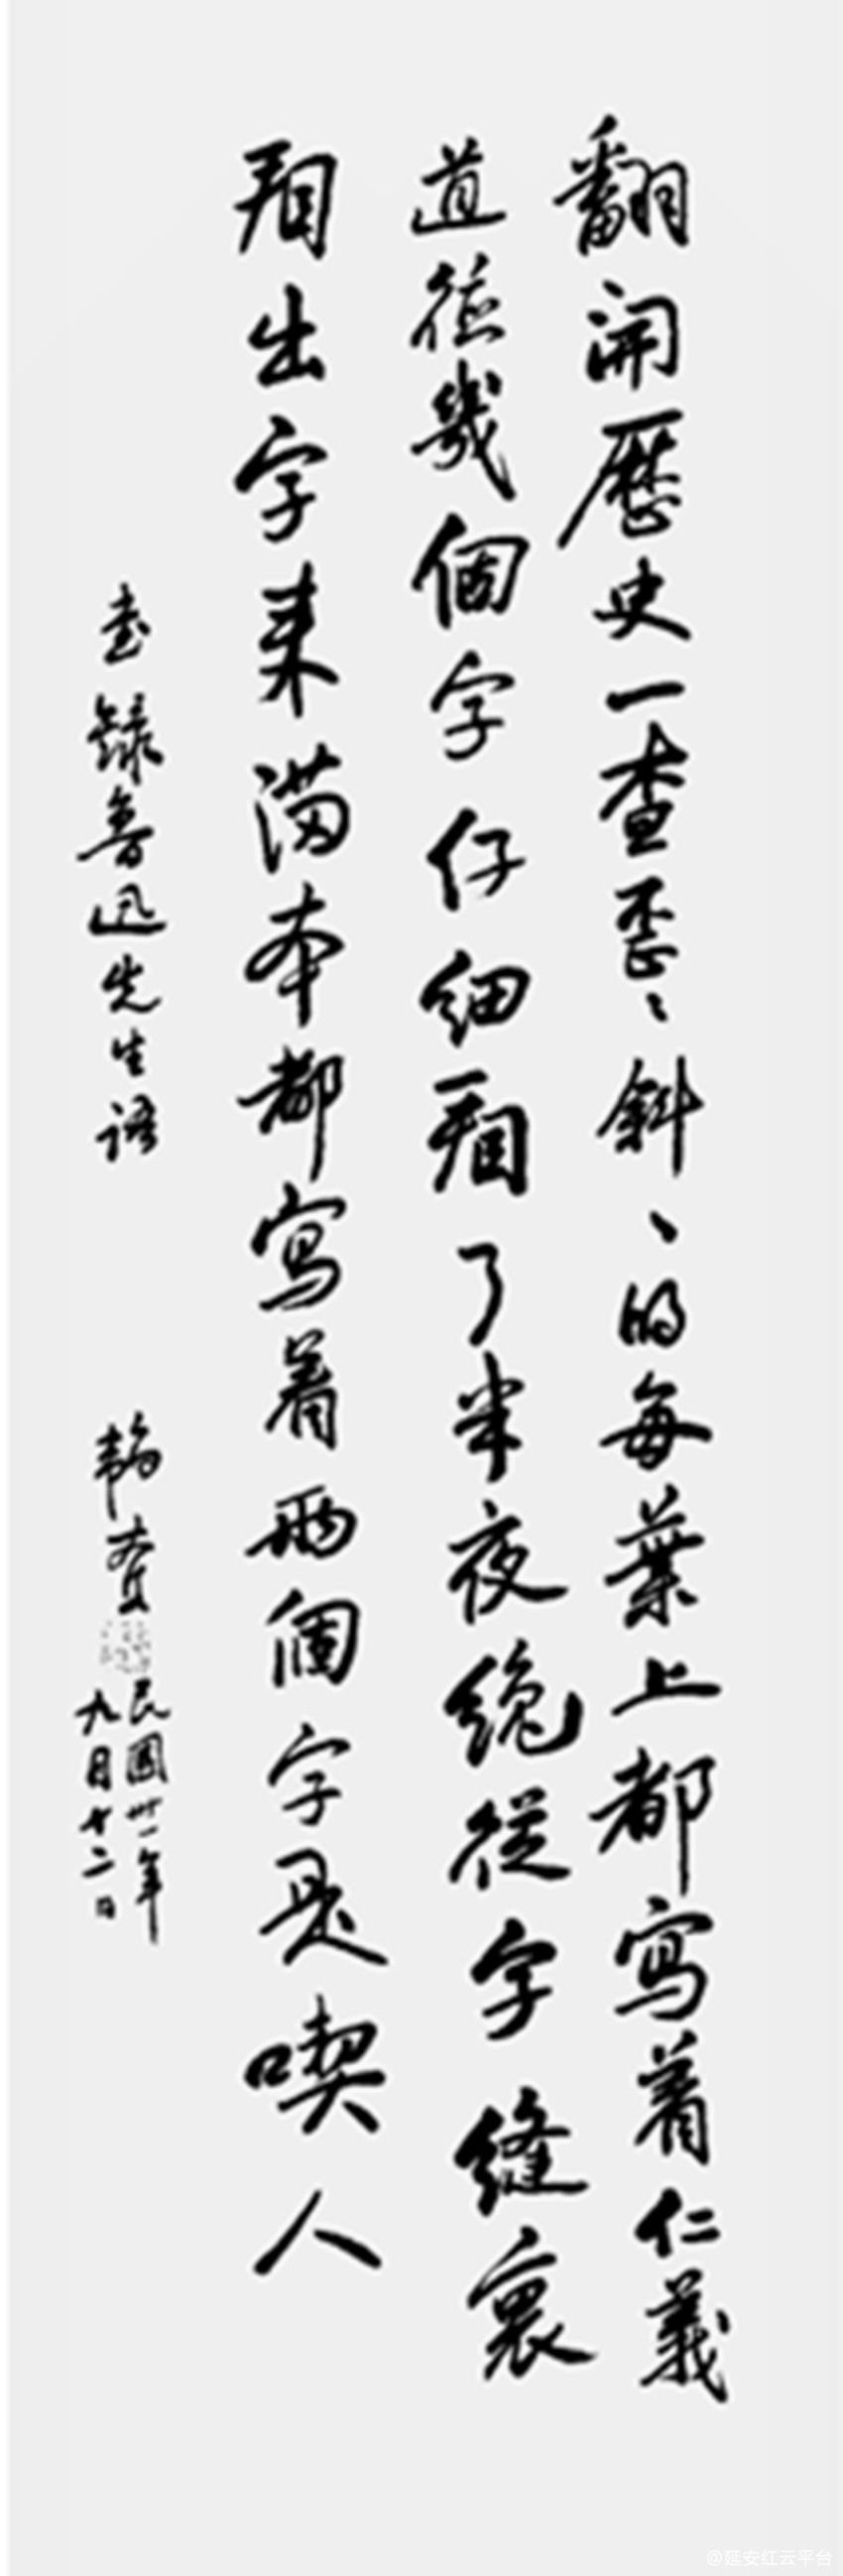 翻開歷史一查歪々斜々的每葉上都寫着仁義
道德幾個字仔細看了半夜纔從字縫裏
看出字來滿本都寫着兩個字是喫人
書錄魯迅先生語
韜奮
民國卅一年
九月十二日
@延安红云平台